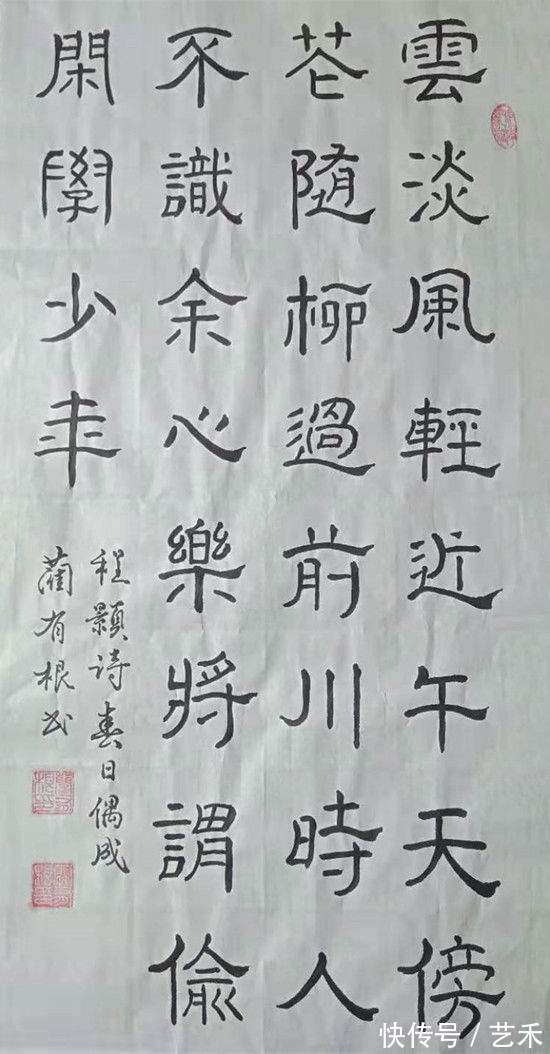 雲淡風輕近午天傍
芲随柳過前川時人
不識余心樂將謂偷
閑學少年
程顥诗春日偶成
蔺有根书
快传号 / 艺禾